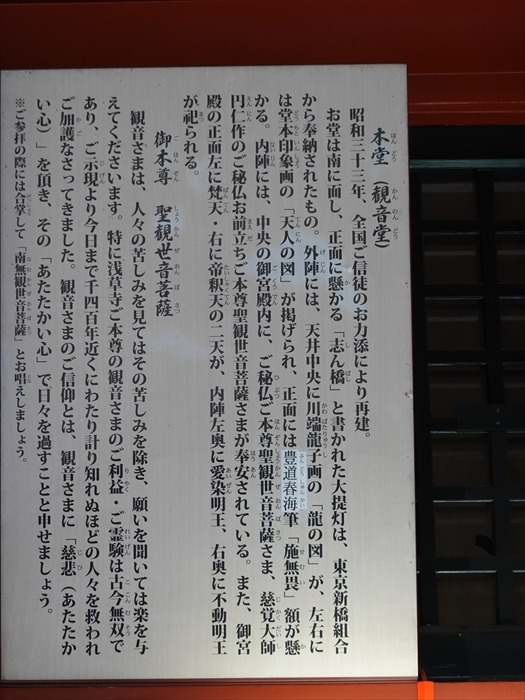 本堂(観音堂)
昭和三十三年、全国ご信徒のお力添により再建。
お堂は南に面し、正面に懸かる「志ん橋」と書かれた大提灯は、東京新橋組合
から奉納されたもの。外陣には、天井中央に川端龍子画の「龍の図」が、左右に
は堂本印象画の「天人の図」が掲げられ、正面には豊道春海筆「施無畏」額が懸
かる。内陣には、中央の御宮殿内に、ご秘仏ご本尊聖観世音菩薩さま、慈覚大師
円仁作のご秘仏お前立ちご本尊聖観世音菩薩さまが奉安されている。また、御宮
殿の正面左に梵天・右に帝釈天の二天が、内陣左奥に愛染明王、右奥に不動明王
が祀られる。
御本尊 聖観世音菩薩
観音さまは、人々の苦しみを見てはその苦しみを除き、願いを聞いては楽を与
えてくださいます。特に浅草寺ご本尊の観音さまのご利益・ご霊験は古今無双で
あり、ご示現より今日まで千四百年近くにわたり計り知れぬほどの人々を救われ
ご加護なさってきました。観音さまのご信仰とは、観音さまに「慈悲(あたたか
い心)」を頂き、その「あたたかい心」で日々を過すことと申せましょう。
※ご参拝の際には合掌して「南無観世音菩薩」とお唱えしましょう。